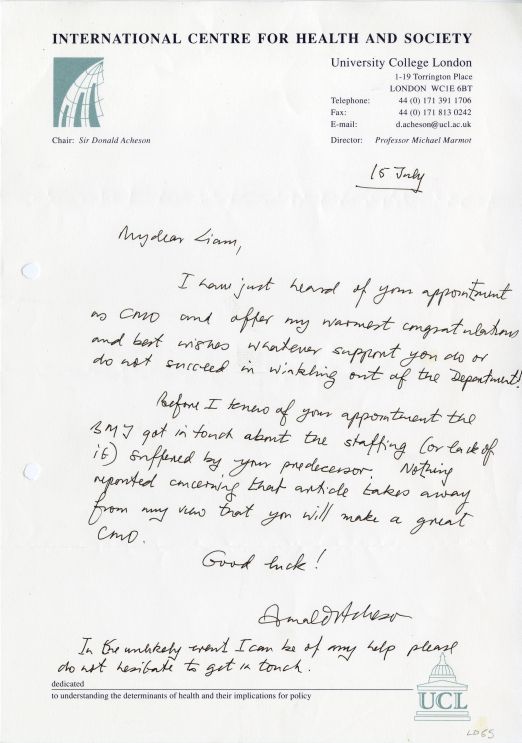 INTERNATIONAL CENTRE FOR HEALTH AND SOCIETY
University College London
1-19 Torrington Place
LONDON WC1E 6BT
Telephone: 44 (0) 171 391 1706
Fax: 44 (0) 171 813 0242
E-mail: d.acheson@ucl.ac.uk
Chair: Sir Donald Acheson
Director: Professor Michael Marmot
15 July
My dear Liam,
I have just heard of your appointment
as CMO and offer my warmest congratulations
and best wishes whatever support you do or
do not succeed in winkling out of the Department!
Before I knew of your appointment the
BMJ got in touch about the staffing (or lack of
it) suffered by your predecessor. Nothing
reported concerning that article takes away
from my view that you will make a great
CMO.
Good luck!
Donald Acheson
In the unlikely event I can be of any help please
do not hesitate to get in touch.
dedicated
to understanding the determinants of health and their implications for policy
UCL
LD65